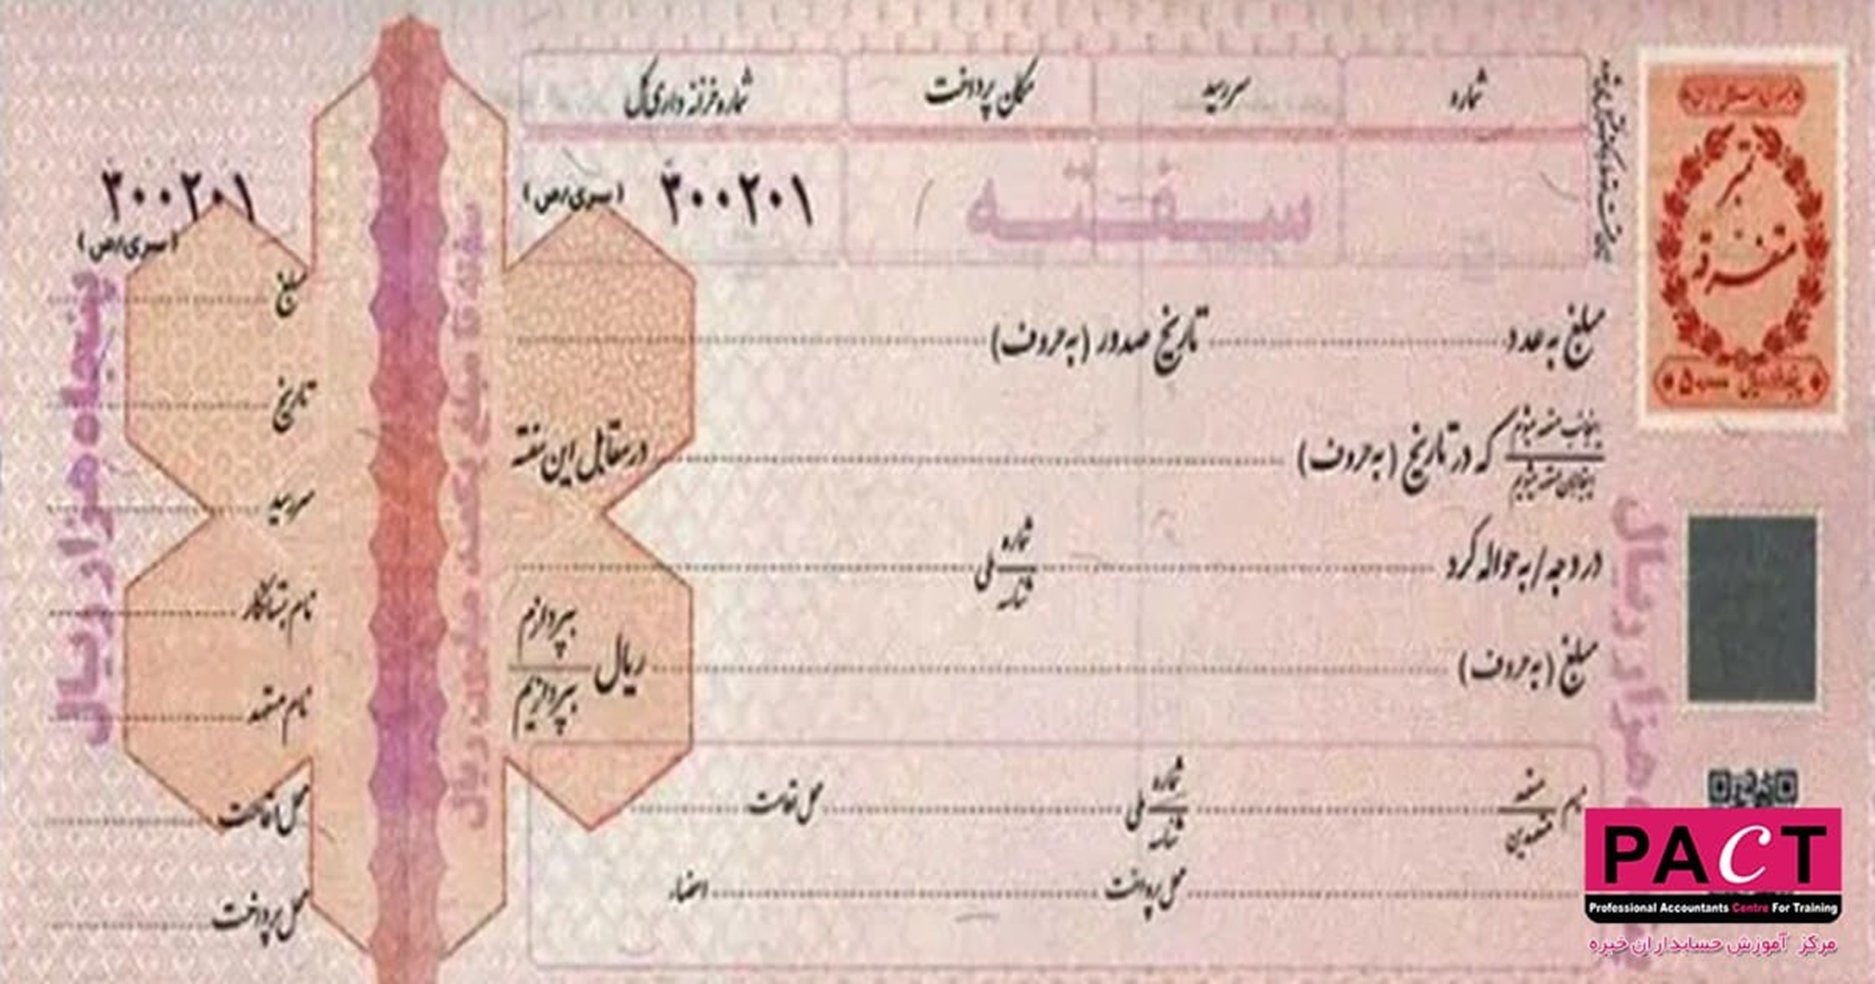 شماره
سررسید
مکان پرداخت
شماره خزانه داری کل
سفته
۲۰۰۲۰۱ (سری/ص)
۲۰۰۲۰۱
(سری/ص)
تمبر
متفرقه
مبلغ به عدد
تاریخ صدور (به حروف)
اینجانب متعهد میشوم
اینجانبان متعهد میشویم
که در تاریخ (به حروف)
در مقابل این سفته
در وجه/به حواله کرد
شماره
شناسه
ملی
مبلغ (به حروف)
ریال
بپردازم
بپردازیم
نام
متعهد
متعهدین
شماره
شناسه
ملی
محل اقامت
محل پرداخت
امضاء
مبلغ
تاریخ
سررسید
نام بستانکار
نام متعهد
محل اقامت
محل پرداخت
پنجاه هزار ریال
سفته تا مبلغ یکصد میلیون ریال
هزار ریال
PACT
Professional Accountants Centre For Training
مرکز آموزش حسابداران خبره